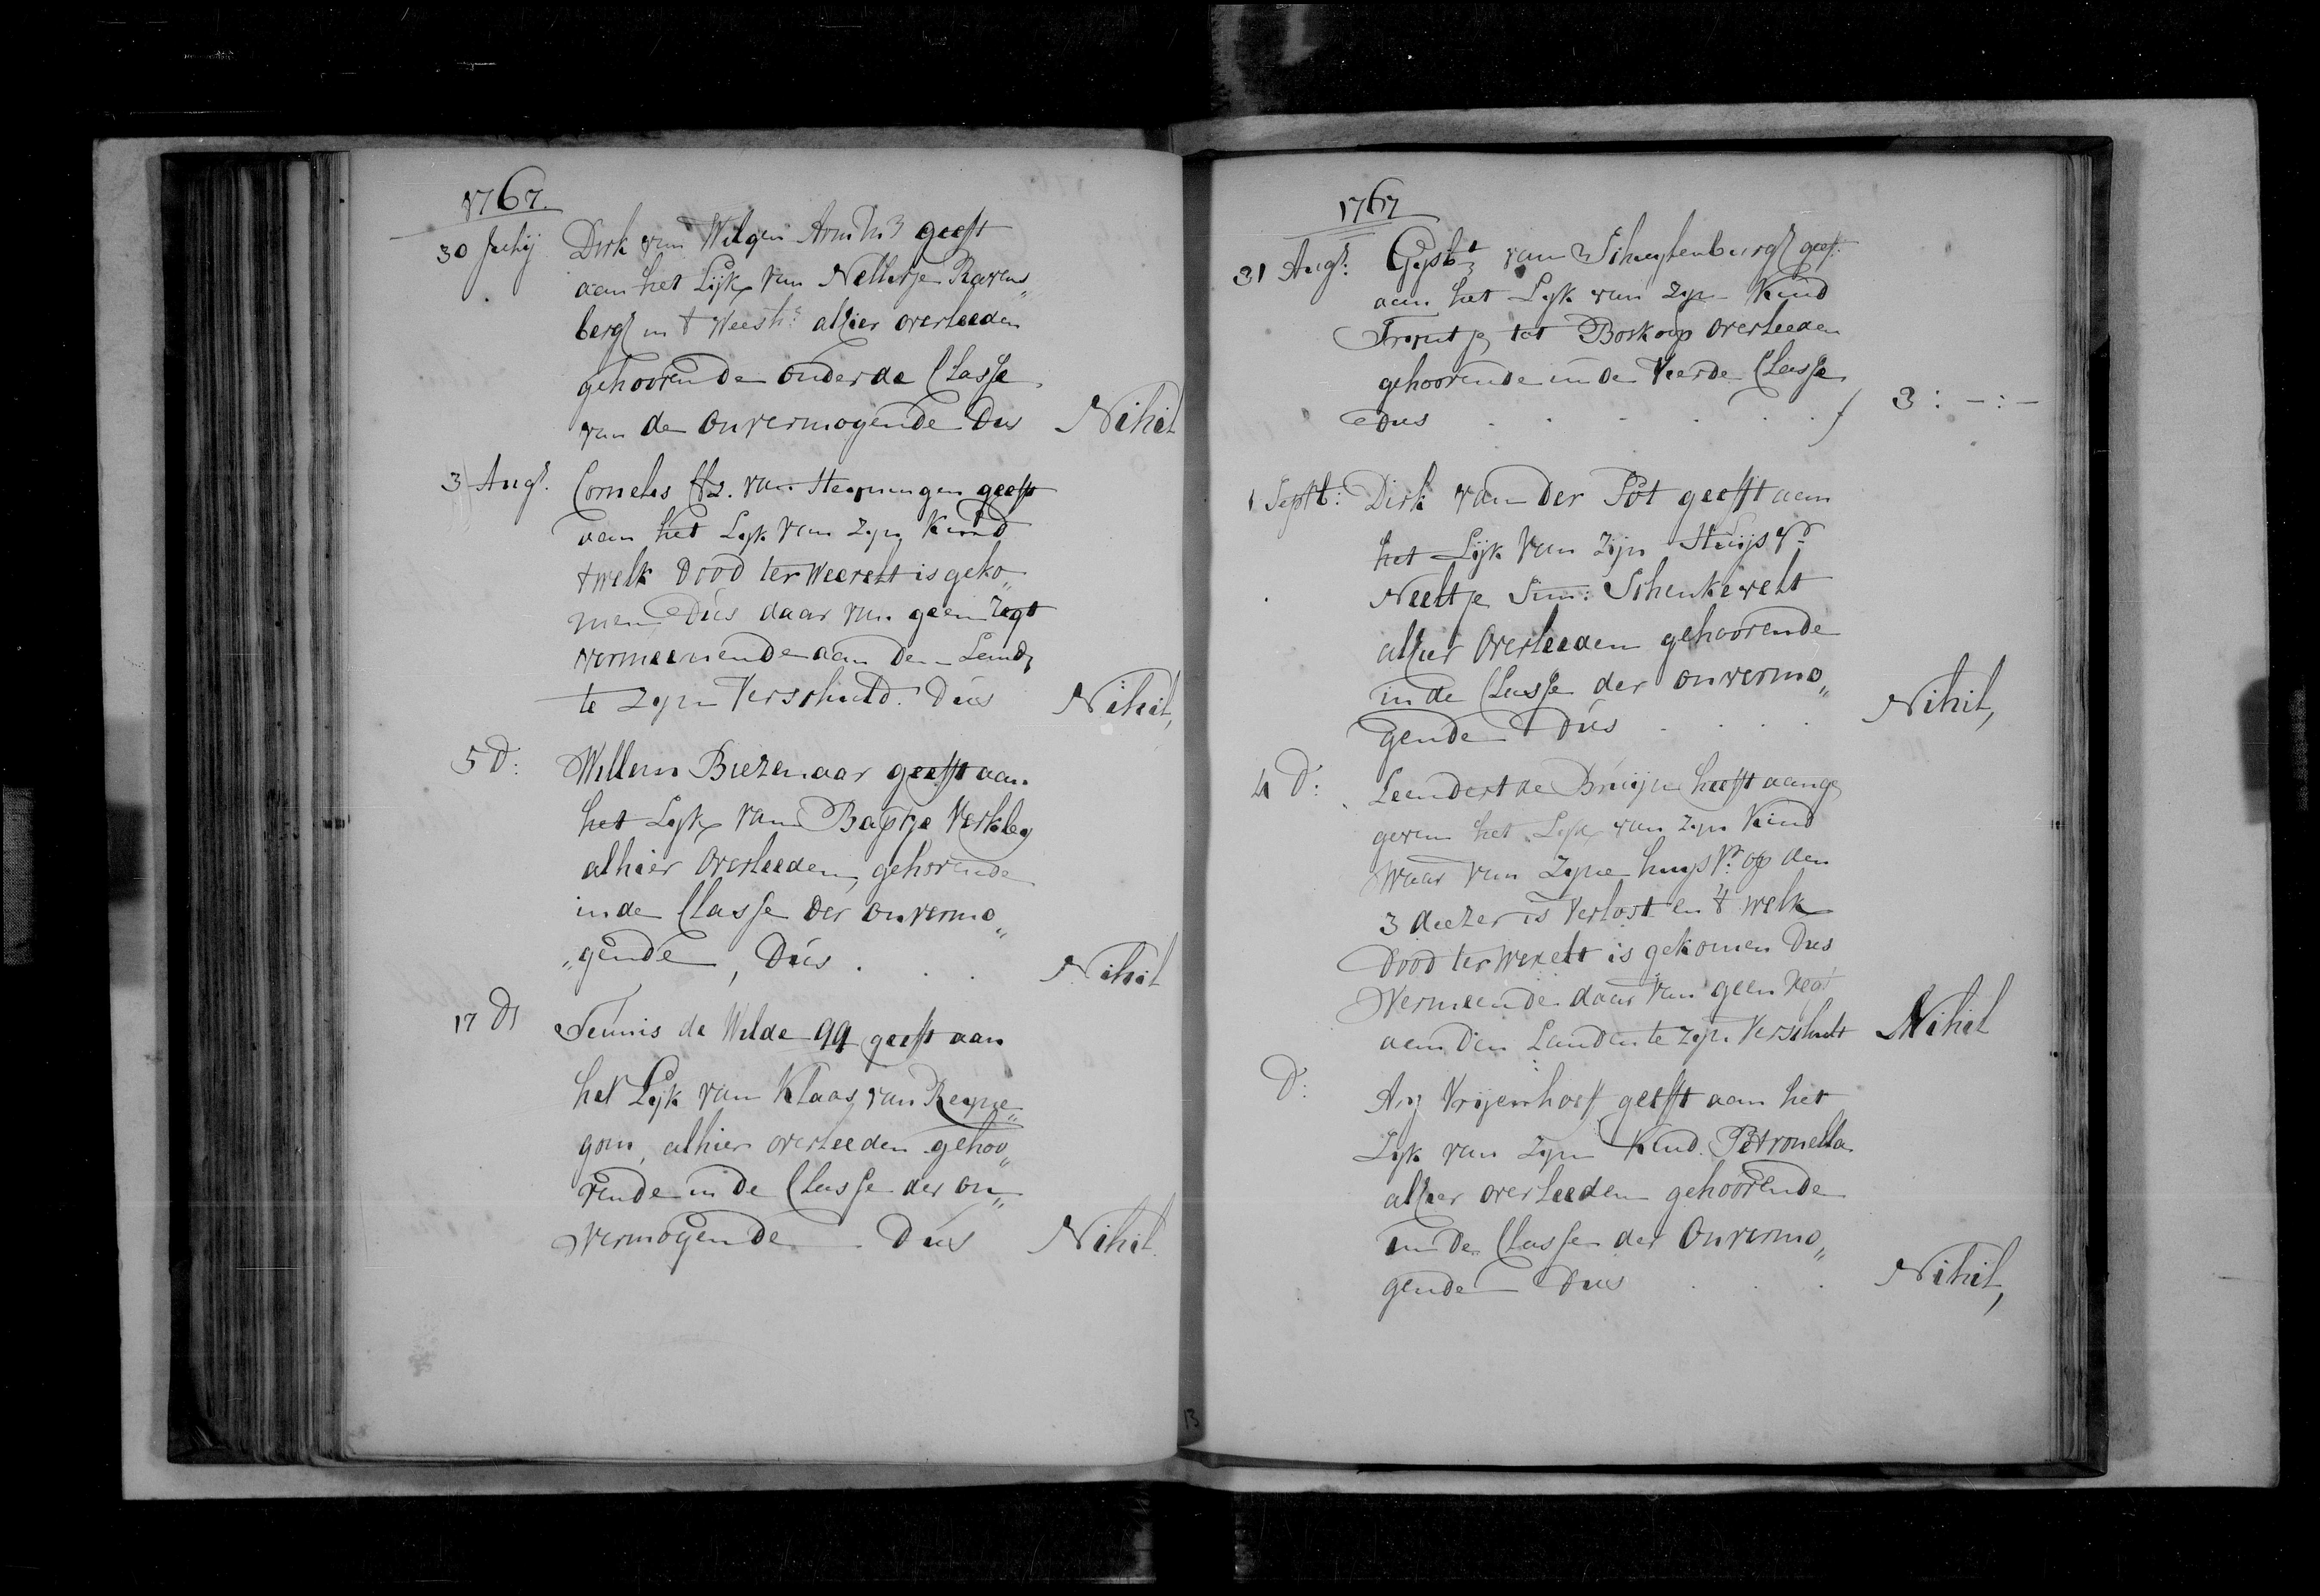 1767.
30 Julij Dirk van Wilgen Armm geeft
aan het Lijk van Nelletje Ravens„
berg in t Weesh: alhier overleeden
gehoorende onder de Classe
van de onvermogende Dus Nihil
3 Augs. Cornelis van geeft
aan het Lijk van Zijn Kind
twelk Dood ter Weerelt is geko„
men Dus daar van geen regt
vermeenende aan den Lande
te Zijn Verschuld. Dus Nihil,
5 D: Willem Biezenaar geeft aan
het Lijk van Baptje Verkley
alhier Overleeden, gehorende
in de Classe der onvermo„
„gende, Dus . . . Nihil
17 D: Teunis de Wilde qq geeft aan
het Lijk van Klaas van Reyne„
gom, alhier overleeden gehoo„
rende in de Classe der on„
vermogende Dus Nihil.
1767
31 Augs: Gijsbt van Schuylenburg geeft
aan het Lijk van Zijn Kind
Trijntje tot Boskoop Overleeden
gehoorende in de Vierde Classe
Dus . . . . . ƒ 3:-:-
1 Septb: Dirk van der Pot geeft aan
het Lijk van Zijn Huijsvr
Neeltje Sim: Schenkevelt
alhier Overleeden gehoorende
in de Classe der onvermo„
gende Dus . . . Nihil,
4 D: Leendert de Bruijn heeft aange
geven het Lijk van Zijn Kind
Waar van Zijne huijsvr: op den
3 deezer is Verlost en t welk
Dood ter Werelt is gekomen Dus
Vermeende daar van geen regt
aan den Landen te Zijn Verschult Nihil
D: Arij Vrijenhoef geeft aan het
Lijk van Zijn Kind Petronella
alhier overleeden gehoorende
in de Classe der Onvermo„
gende Dus . . Nihil,
13